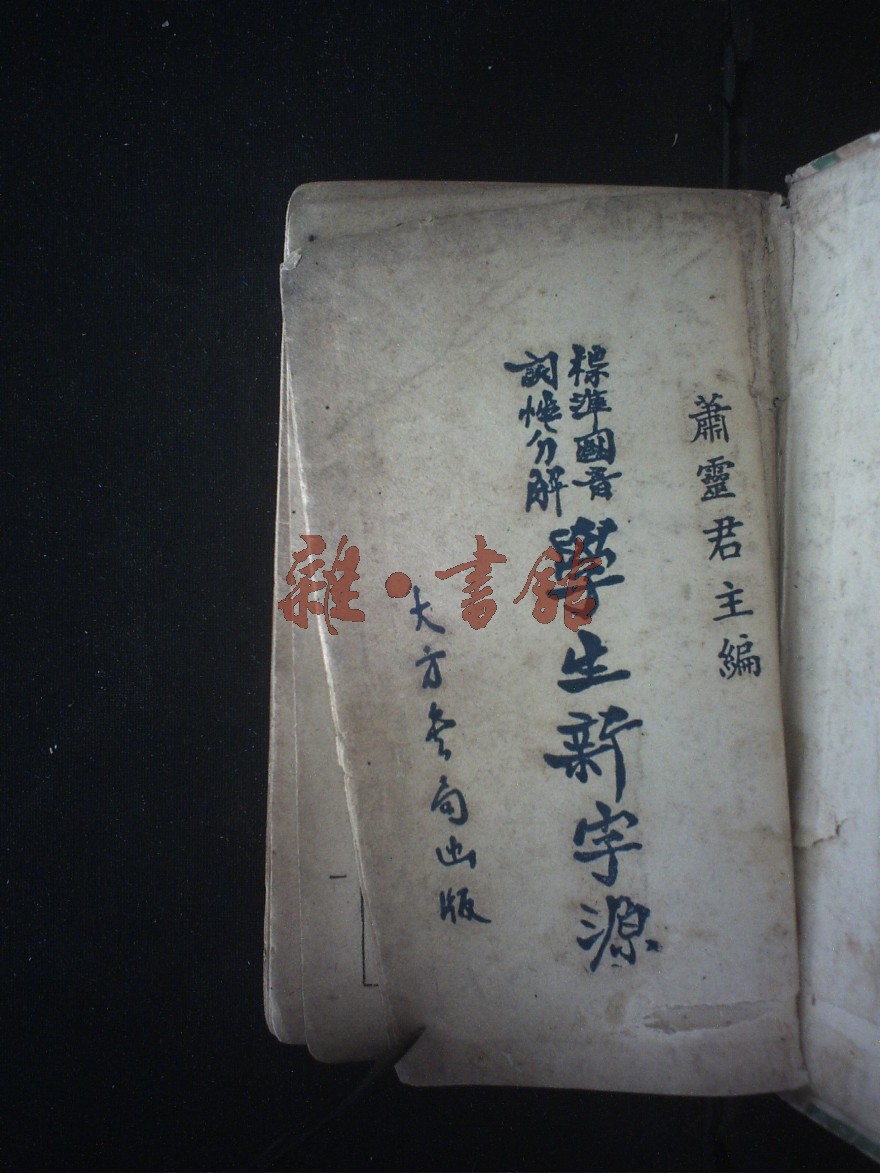 蕭靈君主編
標準國音
詞性分解
學生新字源
大方書局出版
雜·書館